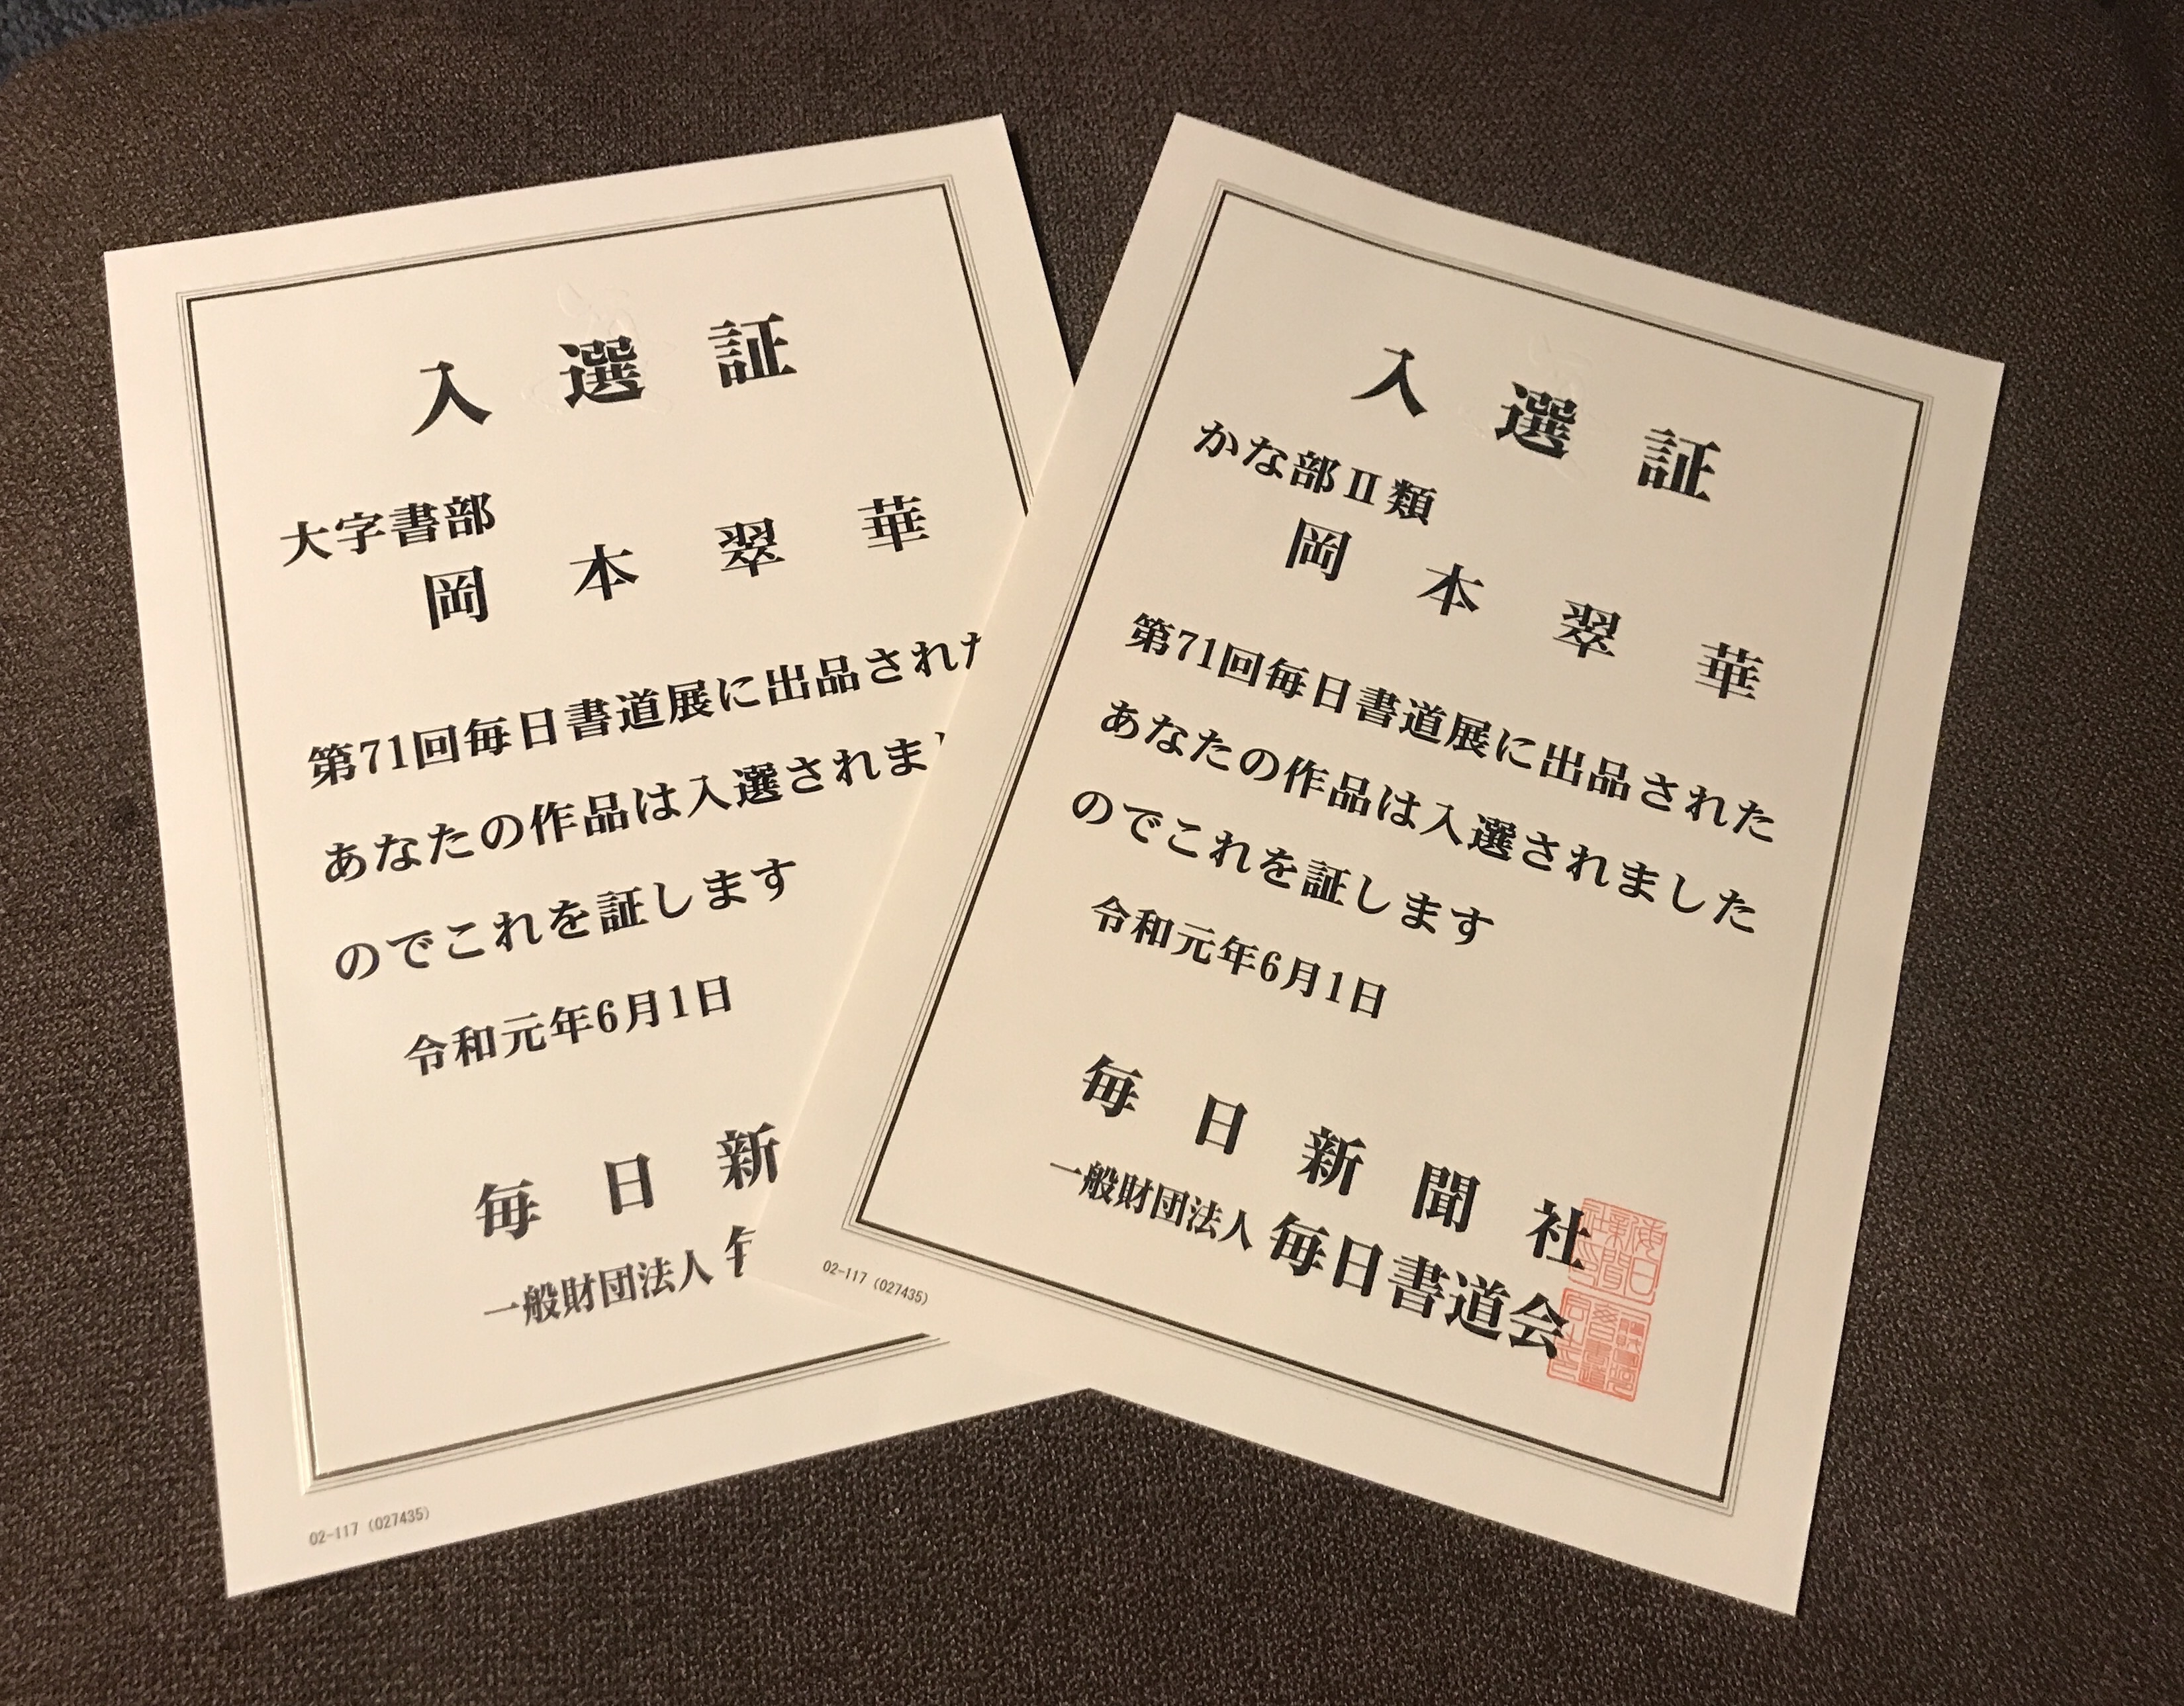 入選証
大字書部
岡本翠華
第71回毎日書道展に出品された
あなたの作品は入選されまし
のでこれを証します
令和元年6月1日
毎日新
一般財団法人
02-117 (027435)
入選証
かな部Ⅱ類
岡本翠華
第71回毎日書道展に出品された
あなたの作品は入選されました
のでこれを証します
令和元年6月1日
毎日新聞社
一般財団法人 毎日書道会
02-117 (027435)